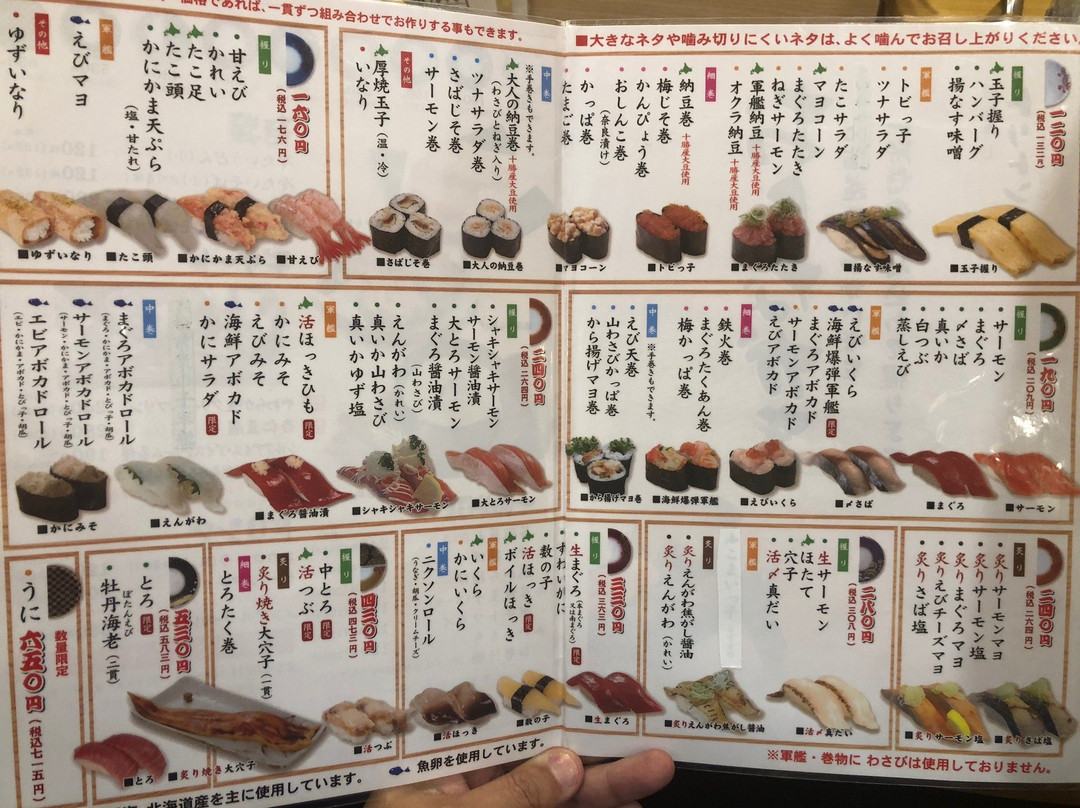 価格であれば、一貫ずつ組み合わせてお作りする事もできます。
■大きなネタや噛み切りにくいネタは、よく噛んでお召し上がりください。
一二〇円
(税込 一三二円)
握り
玉子握り
ハンバーグ
揚げなす味噌
軍艦
トビっ子
ツナサラダ
たこサラダ
マヨコーン
まぐろたたき
ねぎサーモン
軍艦納豆 十勝産大豆使用
オクラ納豆 十勝産大豆使用
細巻
納豆巻 十勝産大豆使用
梅じそ巻
かんぴょう巻
おしんこ巻
(奈良漬け)
かっぱ巻
たまご巻
■玉子握り
■揚げなす味噌
■まぐろたたき
■トビっ子
■マヨコーン
中巻
※手巻きもできます。
大人の納豆巻 十勝産大豆使用
(わさびとねぎ入り)
ツナサラダ巻
さばじそ巻
サーモン巻
その他
厚焼玉子(温・冷)
いなり
■大人の納豆巻
■さばじそ巻
一六〇円
(税込 一七六円)
握り
甘えび
かれい
たこ足
たこ頭
かにかま天ぷら
(塩・甘たれ)
軍艦
えびマヨ
その他
ゆずいなり
■甘えび
■かにかま天ぷら
■たこ頭
■ゆずいなり
一九〇円
(税込 二〇九円)
握り
サーモン
まぐろ
〆さば
真いか
白つぶ
蒸しえび
軍艦
えびいくら
海鮮爆弾軍艦 限定
まぐろアボカド
サーモンアボカド
えびアボカド
細巻
鉄火巻
まぐろたくあん巻
梅かっぱ巻
中巻
※手巻きもできます。
えび天巻
山わさびかっぱ巻
から揚げマヨ巻
■サーモン
■まぐろ
■〆さば
■えびいくら
■海鮮爆弾軍艦
■から揚げマヨ巻
二四〇円
(税込 二六四円)
握り
シャキシャキサーモン
サーモン醤油漬
大とろサーモン
まぐろ醤油漬
(山わさび)
えんがわ(かれい)
真いか山わさび
真いかゆず塩
軍艦
活ほっきひも 限定
かにみそ
えびみそ
海鮮アボカド
かにサラダ 限定
中巻
まぐろアボカドロール
(まぐろ・かにかま・アボカド・とびっ子・胡瓜)
サーモンアボカドロール
(サーモン・かにかま・アボカド・とびっ子・胡瓜)
エビアボカドロール
(エビ・かにかま・アボカド・とびっ子・胡瓜)
■大とろサーモン
■シャキシャキサーモン
■まぐろ醤油漬
■えんがわ
■かにみそ
二四〇円
(税込 二六四円)
炙り
炙りサーモンマヨ
炙りサーモン塩
炙りまぐろマヨ
炙りえびチーズマヨ
炙りさば塩
■炙りさば塩
■炙りサーモン塩
二八〇円
(税込 三〇八円)
握り
生サーモン
ほたて
穴子
活〆真だい
軍艦
炙り
炙りえんがわ焦がし醤油
炙りえんがわ(かれい)
■活〆真だい
■炙りえんがわ焦がし醤油
三三〇円
(税込 三六三円)
握り
生まぐろ 限定
ずわいがに
数の子
活ほっき
ボイルほっき
軍艦
いくら
かにいくら
中巻
ニクソンロール
(うなぎ・胡瓜・クリームチーズ)
■生まぐろ
■数の子
■活ほっき
四三〇円
(税込 四七三円)
握り
中とろ 限定
活つぶ 限定
炙り
炙り焼き大穴子(一貫)
細巻
とろたく巻
■活つぶ
■炙り焼き大穴子
五三〇円
(税込 五八三円)
とろ 限定
牡丹海老(二貫)
ぼたんえび
■とろ
数量限定
うに 六五〇円
(税込 七一五円)
※軍艦・巻物に わさびは使用しておりません。
魚卵を使用しています。
北海道産を主に使用しています。